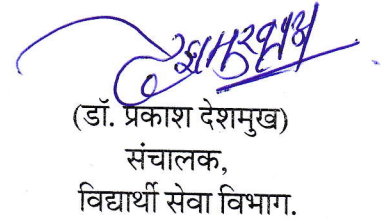 (डॉ. प्रकाश देशमुख)
संचालक,
विद्यार्थी सेवा विभाग.